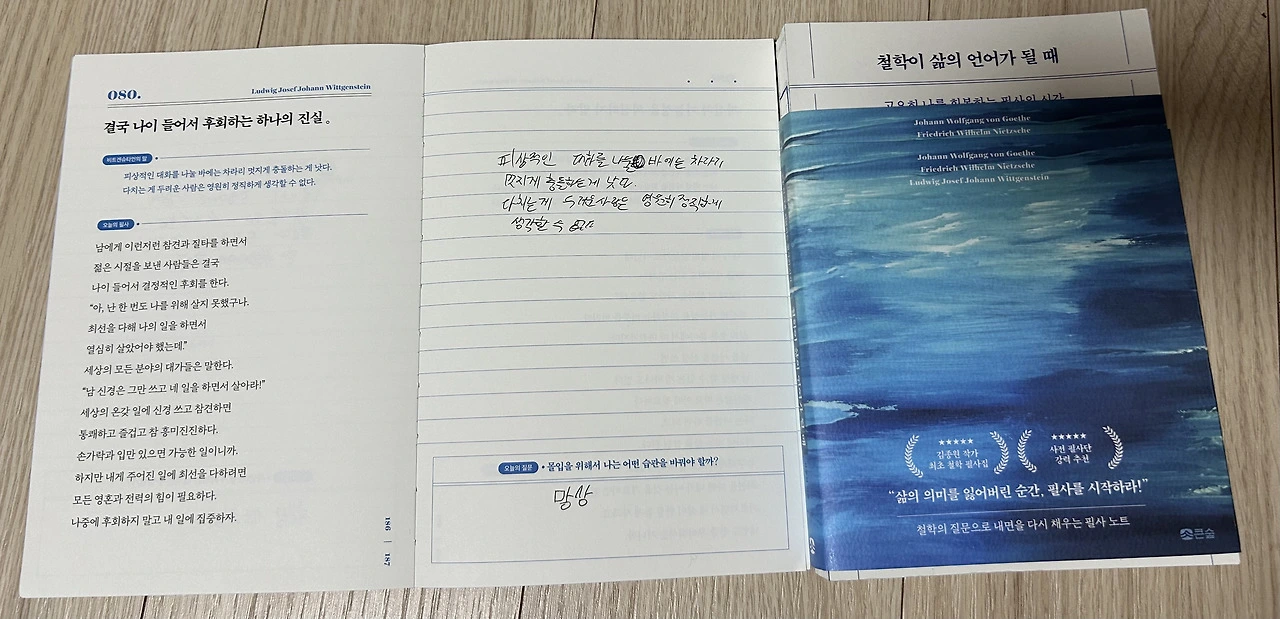 080.
Ludwig Josef Johann Wittgenstein
결국 나이 들어서 후회하는 하나의 진실。
비트겐슈타인의 말
피상적인 대화를 나눌 바에는 차라리 멋지게 충돌하는 게 낫다.
다치는 게 두려운 사람은 영원히 정직하게 생각할 수 없다.
오늘의 필사
남에게 이런저런 참견과 질타를 하면서
젊은 시절을 보낸 사람들은 결국
나이 들어서 결정적인 후회를 한다.
“아, 난 한 번도 나를 위해 살지 못했구나.
최선을 다해 나의 일을 하면서
열심히 살았어야 했는데.”
세상의 모든 분야의 대가들은 말한다.
“남 신경은 그만 쓰고 네 일을 하면서 살아라!”
세상의 온갖 일에 신경 쓰고 참견하면
통쾌하고 즐겁고 참 흥미진진하다.
손가락과 입만 있으면 가능한 일이니까.
하지만 내게 주어진 일에 최선을 다하려면
모든 영혼과 전력의 힘이 필요하다.
나중에 후회하지 말고 내 일에 집중하자.
186 | 187
피상적인 대화를 나눌 바에는 차라리
멋지게 충돌하는게 낫다.
다치는게 두려운 사람은 영원히 정직하게
생각할 수 없다
오늘의 질문
몰입을 위해서 나는 어떤 습관을 바꿔야 할까?
망상
철학이 삶의 언어가 될 때
고요히 나를 회복하는 필사의 시간
Johann Wolfgang von Goethe
Friedrich Wilhelm Nietzsche
Johann Wolfgang von Goethe
Friedrich Wilhelm Nietzsche
Ludwig Josef Johann Wittgenstein
★★★★★
김종원 작가
최초 철학 필사집
★★★★★
사전 필사단
강력 추천
“삶의 의미를 잃어버린 순간, 필사를 시작하라!”
철학의 질문으로 내면을 다시 채우는 필사 노트
큰숲